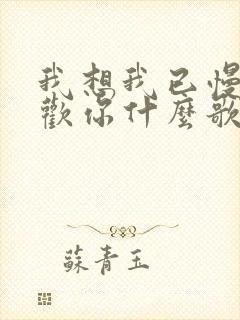 我想我已慢
歡你什麼歌
蘇青玉